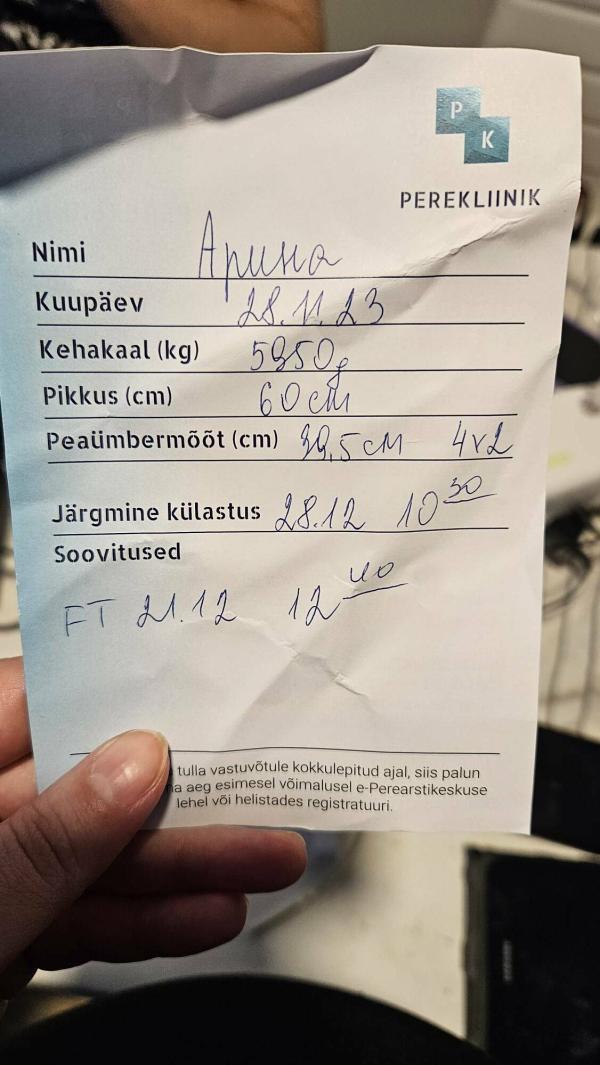 P
K
PEREKLIINIK
Nimi Арина
Kuupäev 28.11.23
Kehakaal (kg) 5950g
Pikkus (cm) 60 cm
Peaümbermõõt (cm) 39,5 cм 4x2
Järgmine külastus 28.12 10 30
Soovitused
FT 21.12 12 40
tulla vastuvõtule kokkulepitud ajal, siis palun
aeg esimesel võimalusel e-Perearstikeskuse
lehel või helistades registratuuri.